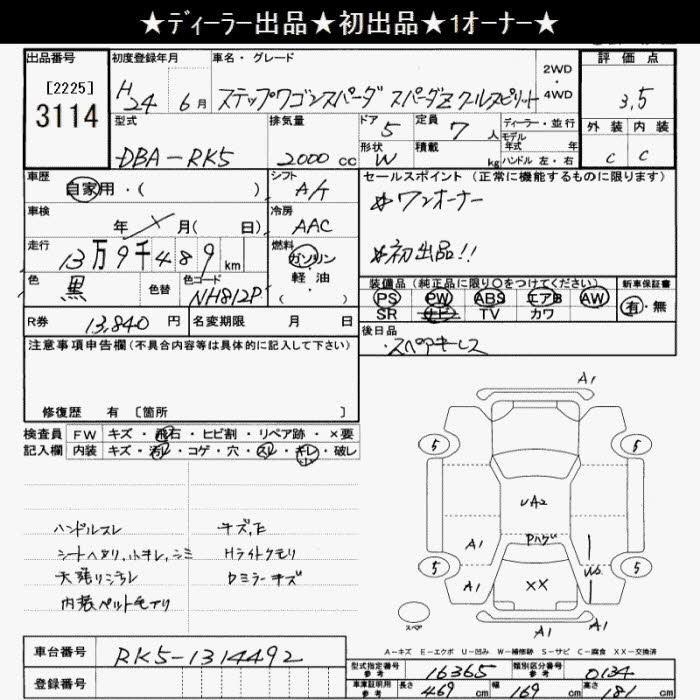 ★ディーラー出品★初出品★1オーナー★
出品番号
[2225]
3114
初度登録年月
H24 6月
車名・グレード
ステップワゴンスパーダ スパーダZ クールスピリット
2WD
・
4WD
評価点
3,5
型式
DBA-RK5
排気量
2000 cc
ドア 5
定員 7 人
形状 W
積載 kg
ディーラー・並行
モデル年式 年
ハンドル 左・右
外装 内装
C C
車歴
自家用・( )
シフト
A/T
セールスポイント (正常に機能するものに限ります)
☆ワンオーナー
☆初出品!!
車検
年 月( 日)
冷房
AAC
走行
13万9千489km
燃料
ガソリン
・
軽・油
・
( )
色
黒
色替
色コード
NH812P
装備品(純正品に限り〇をつけてください)
PS PW ABS エアB AW
SR ナビ TV カワ
新車保証書
有・無
R券 13,840 円
名変期限 月 日
後日品
・スペアキーレス
注意事項申告欄(不具合内容等は具体的に記入して下さい)
修復歴 有 [箇所 ]
検査員
記入欄
FW キズ・飛石・ヒビ割・リペア跡・×要
内装 キズ・汚レ・コゲ・穴・スレ・キレ・破レ
小
ハンドルスレ
シートヘタリ、小キレ、シミ
天張リシミ汚レ
内張ペット毛アリ
キズ,E
Hライトクモリ
Dミラーキズ
A1
5
5
UA2
PハゲU
A1
A1
XX
W2
A1
5
5
A1
A1
スペア
A-キズ E-エクボ U-凹み W-補修跡 S-サビ C-腐食 XX-交換済
車台番号
RK5-1314492
登録番号
型式指定番号
参考
16365
類別区分番号
参考
0134
車庫証明用
参考
長さ 469 cm
幅 169 cm
高さ 181 cm